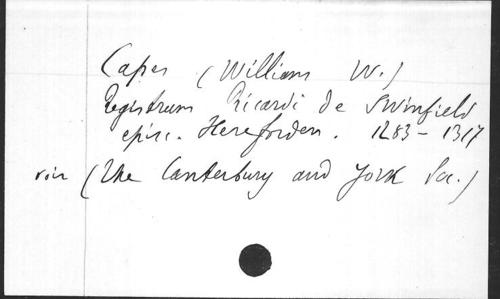 Capes (William W.)
Registrum Ricardi de Swinfield
episc. Hereforden. 1283-1317
voir (The Canterbury and York Soc.)